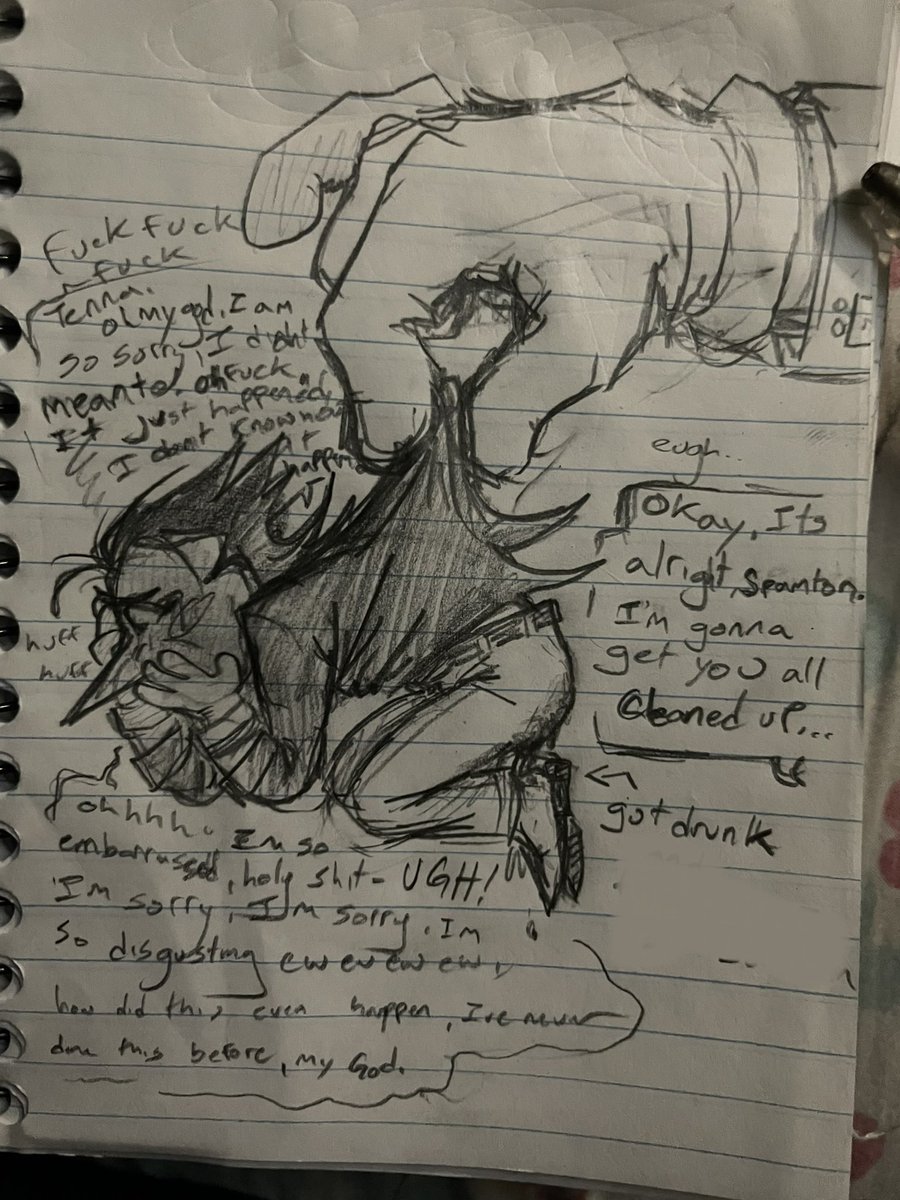 Fuck Fuck
Fuck
Tenna.
oh my god, I am
so sorry, I didnt
mean to! oh fuck,
It just happened,
I dont know how
it
happened
huff
huff
eugh..
Okay, Its
alright, Spamton.
I'm gonna
get you all
cleaned up...
got drunk
ohhhh. I'm so
embarrassed, holy shit- UGH!
I'm sorry, I'm sorry. I'm
so disgusting ew ew ew ew,
how did this even happen, I've never
done this before, my God.